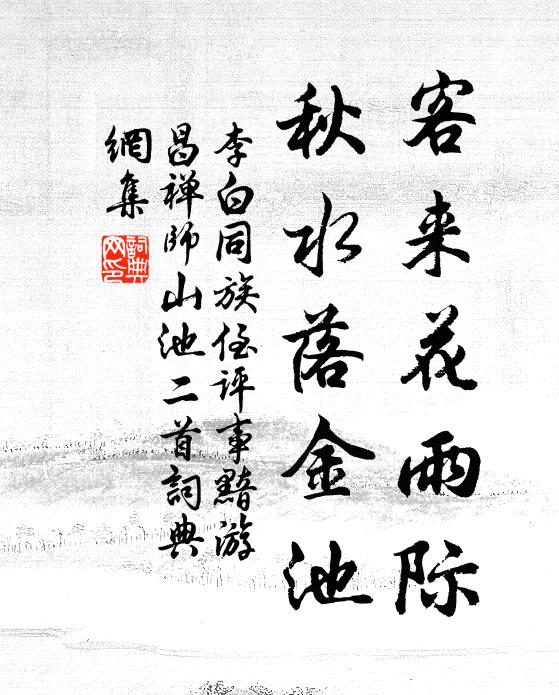 客来花雨际
秋水落金池
李白同族侄评事黯游
昌禅师山池二首詞典
網集
詞典
网印